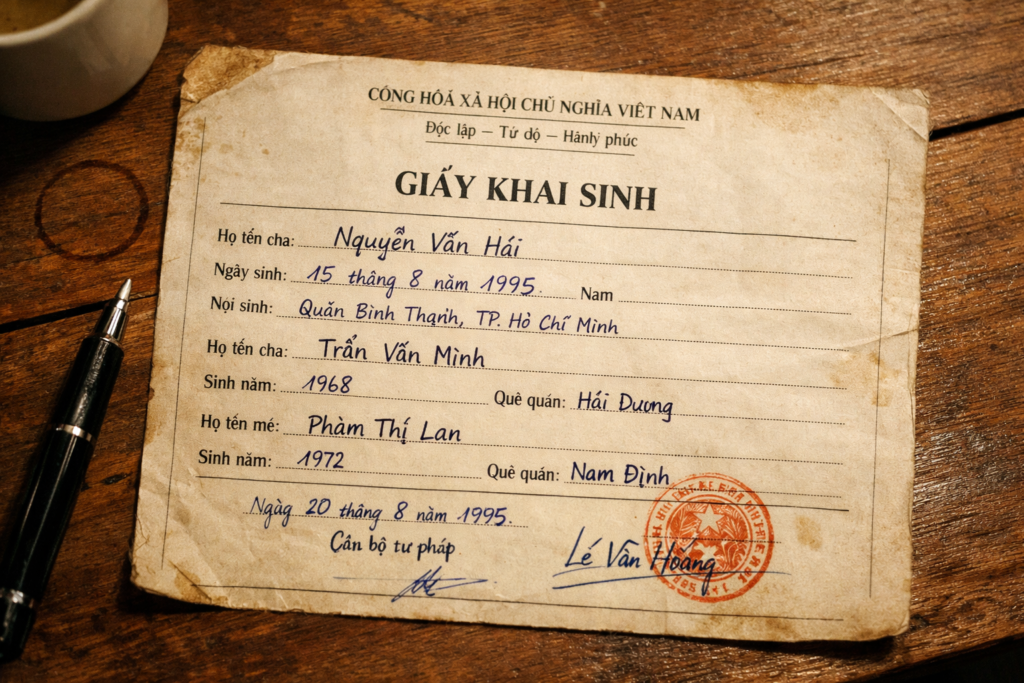 CÔNG HÓÁ XẢ HỘI CHỦ NGHĨA VIÊT NAM
Độc lập — Tứ dộ — Háнlý phúc
GIẤY KHAI SINH
Họ tến cha: Nguyễn Vấn Hái
Ngãy sinh: 15 tháng 8 năm 1995. Nam
Nọi sinh: Quấn Bình Thạnh, TP. Hò Chí Minh
Họ tến cha: Trấn Vấn Minh
Sinh năm: 1968 Quê quán: Hái Dương
Họ tến mé: Phàm Thị Lan
Sinh năm: 1972 Quê quán: Nam Định
Ngàg 20 tháng 8 năm 1995.
Cân bộ tư pháp
Lé Vần Hoáng